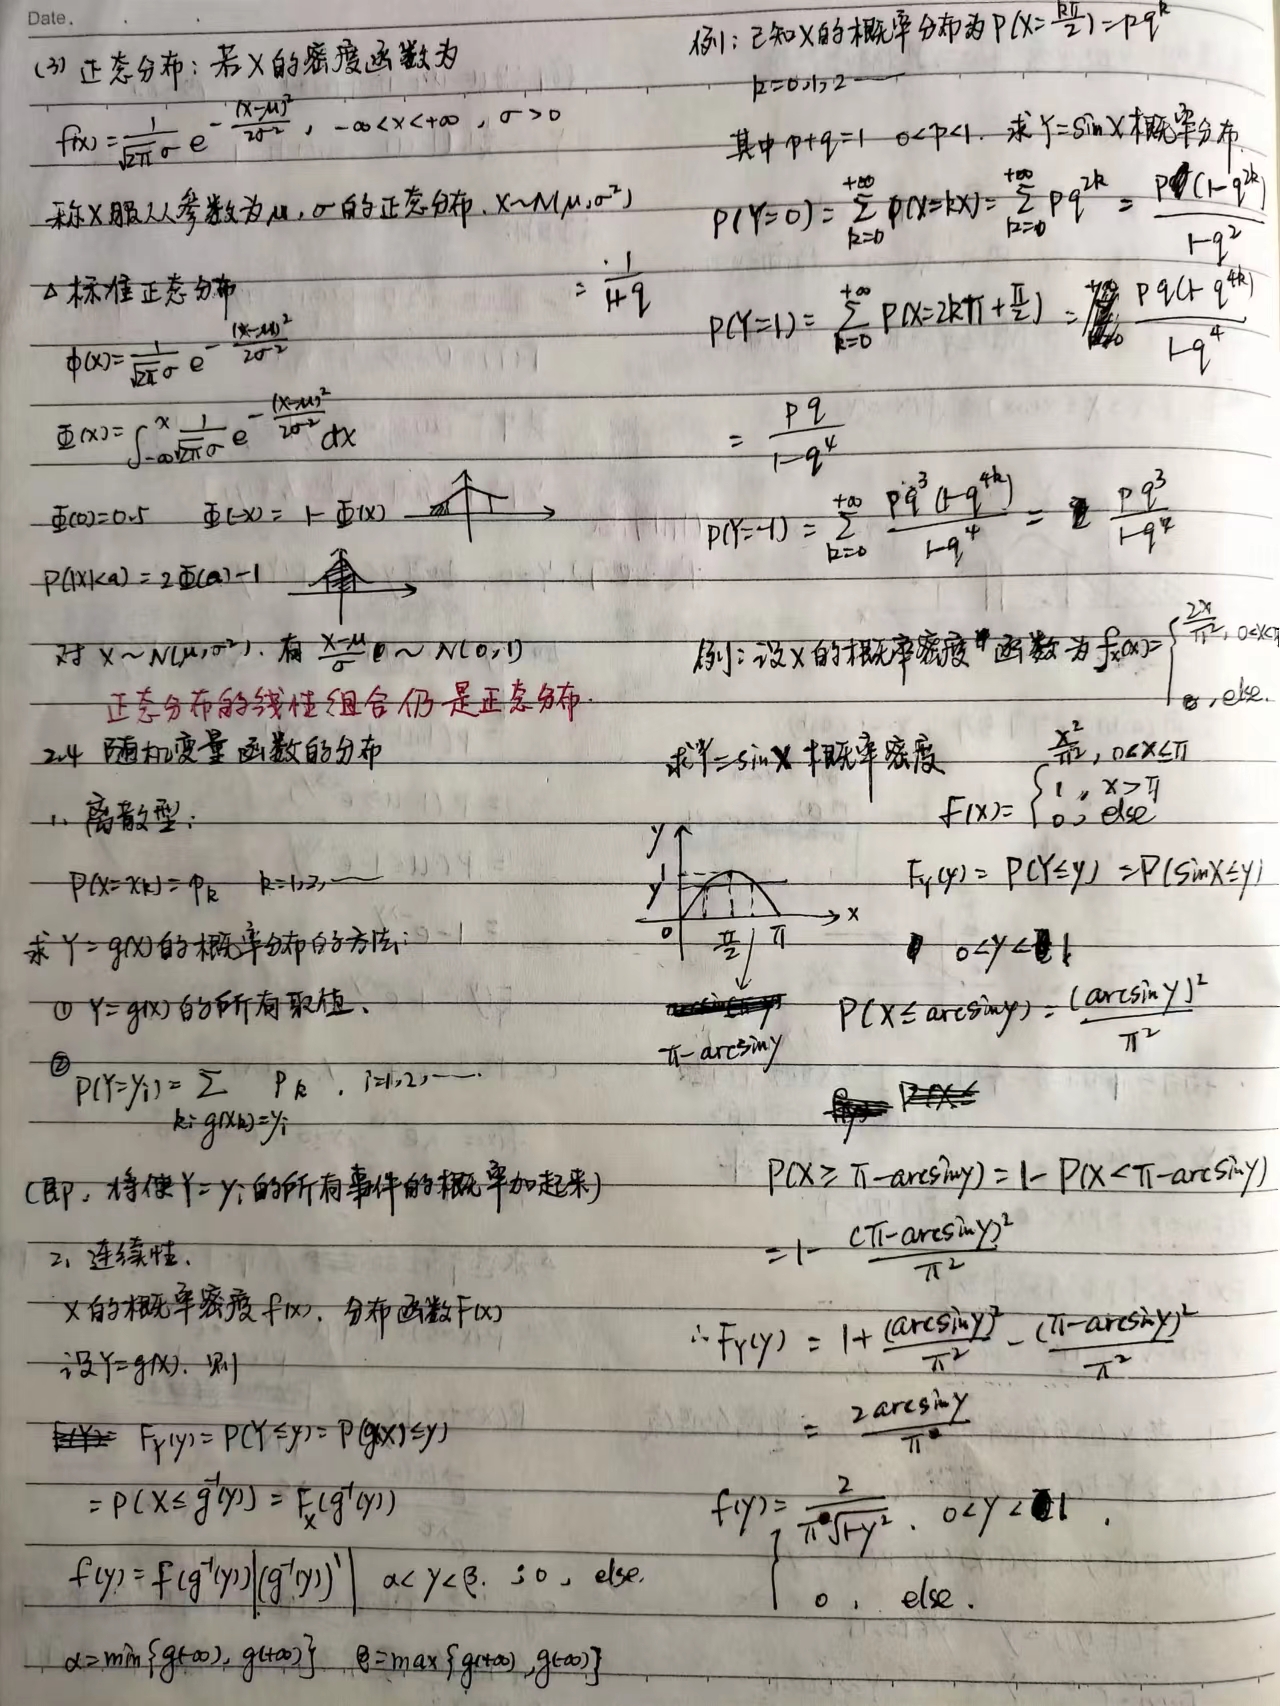 Date.
(3) 正态分布：若X的密度函数为
f(x) = 1/(√2π σ) e^{-(x-μ)²/2σ²}, -∞<x<+∞, σ>0
称X服从参数为μ,σ的正态分布. X~N(μ,σ²)
△标准正态分布
φ(x) = 1/(√2π σ) e^{-(x-μ)²/2σ²}
Φ(x) = ∫_{-∞}^{x} 1/(√2π σ) e^{-(x-μ)²/2σ²} dx
Φ(0)=0.5 Φ(-x) = 1-Φ(x)
P(|X|<a) = 2Φ(a)-1
对 X~N(μ,σ²). 有 (X-μ)/σ ~ N(0,1)
正态分布的线性组合仍是正态分布.
2.4 随机变量函数的分布
1. 离散型：
P(X=xk)=Pk k=1,2,……
求 Y=g(x) 的概率分布的方法:
① Y=g(x) 的所有取值、
② P(Y=yi) = Σ_{k: g(xk)=yi} Pk . i=1,2,…….
(即，将使Y=yi的所有事件的概率加起来)
2. 连续性.
X的概率密度f(x). 分布函数F(x)
设Y=g(x). 则
F_Y(y) = P(Y≤y) = P(g(x)≤y)
= P(X≤g⁻¹(y)) = F_X(g⁻¹(y))
f(y) = f(g⁻¹(y))|(g⁻¹(y))'| α<y<β. ; 0, else.
α=min{g(-∞), g(+∞)} β=max{g(+∞), g(-∞)}
例: 已知X的概率分布为P(X=kπ/2)=pq^k
k=0,1,2……
其中 p+q=1 0<p<1. 求Y=sinX概率分布.
P(Y=0) = Σ_{k=0}^{+∞} P(X=kπ) = Σ_{k=0}^{+∞} pq^{2k} = p(1-q^{2k})/(1-q²)
= 1/(1+q)
P(Y=1) = Σ_{k=0}^{+∞} P(X=2kπ+π/2) = pq(1-q^{4k})/(1-q⁴)
= pq/(1-q⁴)
P(Y=-1) = Σ_{k=0}^{+∞} pq³(1-q^{4k})/(1-q⁴) = pq³/(1-q⁴)
例: 设X的概率密度函数为f_X(x) = { 2x/π², 0<x<π
0, else.
求Y=sinX 概率密度
F(x) = { x²/π², 0≤x≤π
1, x>π
0, else
y
1
y
0 π/2 π x
π-arcsiny
F_Y(y) = P(Y≤y) = P(sinX≤y)
0<y<1
P(X≤arcsiny) = (arcsiny)²/π²
P(X≥π-arcsiny) = 1-P(X<π-arcsiny)
= 1-(π-arcsiny)²/π²
∴ F_Y(y) = 1+(arcsiny)²/π² - (π-arcsiny)²/π²
= 2arcsiny/π
f(y) = { 2/(π√1-y²), 0<y<1,
0, else.